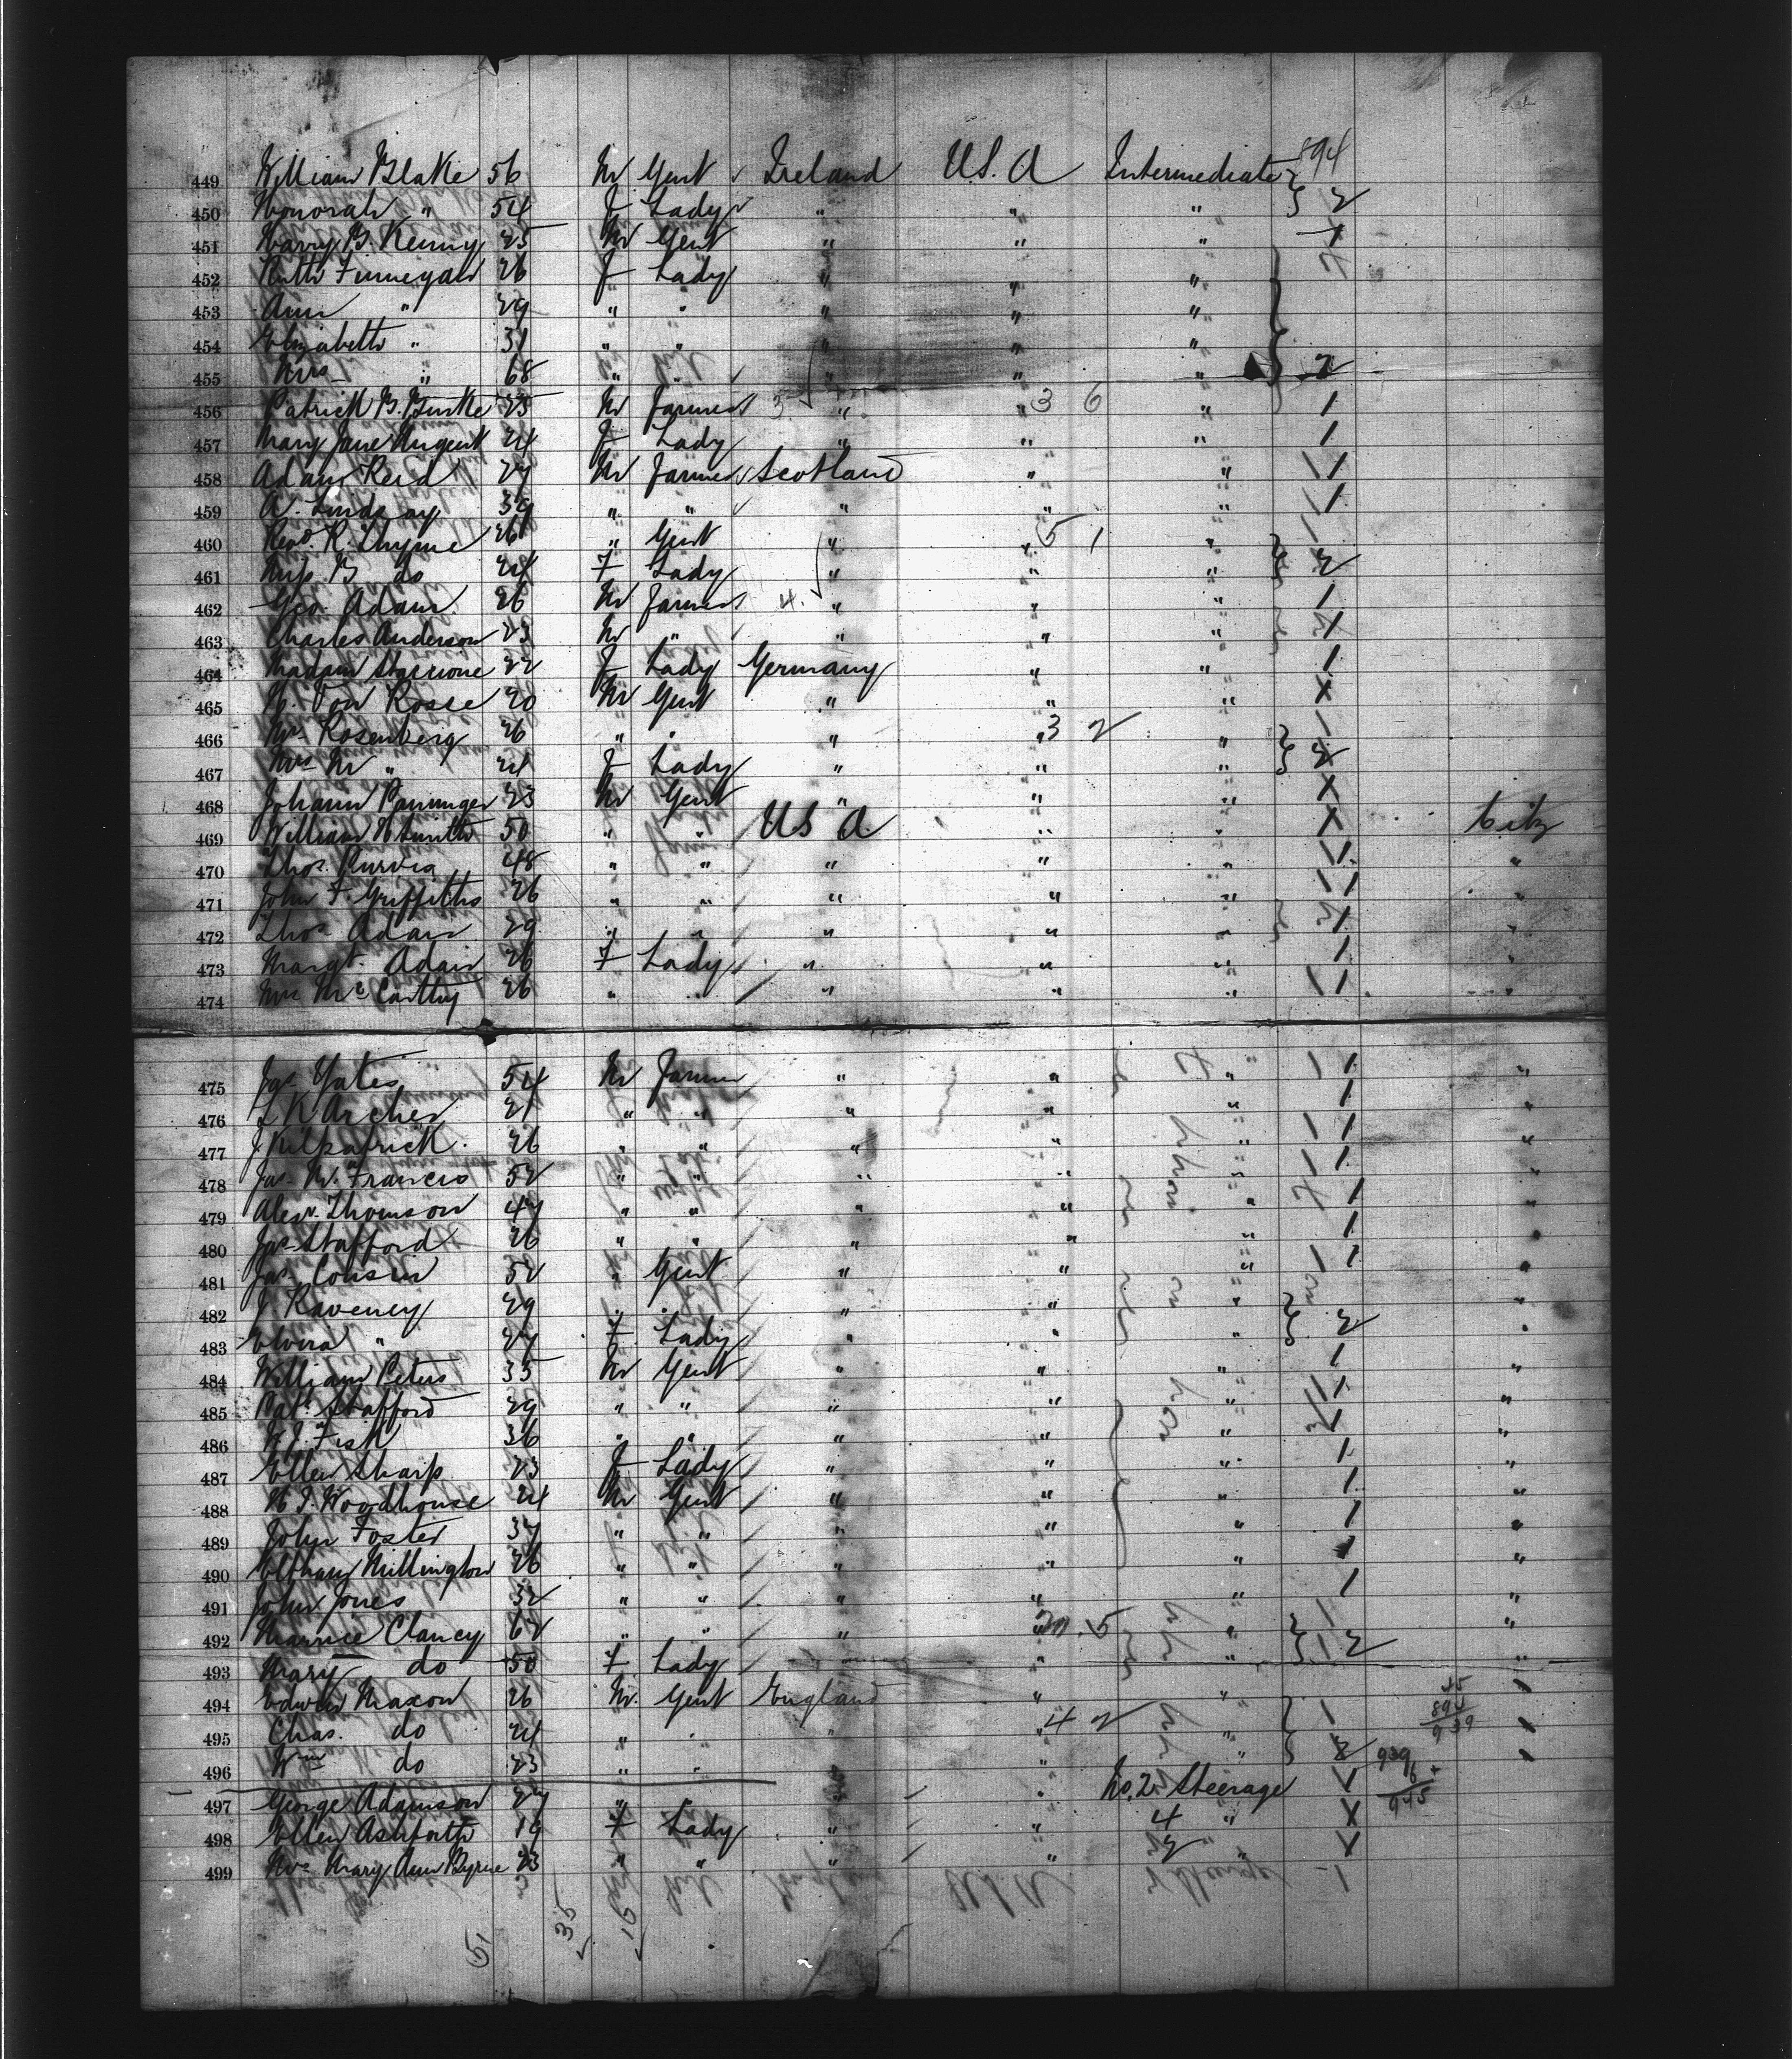 894
449 William Blake 56 M Gent Ireland U.S.A Intermediate
450 Honorah " 54 F Lady " " " 2
451 Harry B. Kenny 25 M Gent " " " 1
452 Ruth Finnegan 26 F Lady " " "
453 Ann " 29 " " " " "
454 Elizabeth " 31 " " " " "
455 Mrs " 68 " " " " "
456 Patrick B. Burke 25 M Farmer 3 " " 3 6 " 1
457 Mary Jane Nugent 24 F Lady " " " 1
458 Adam Reid 27 M Farmer Scotland " " 1
459 A. Lindsay 39 " " " " " 1
460 Revd. R. Thyme 26 " Gent " " 5 1 "
461 Mrs. B do 24 F Lady " " " 2
462 Geo. Adam 26 M Farmer 4. " " " 1
463 Charles Anderson 23 M " " " " 1
464 Madam 22 F Lady Germany " " 1
465 Von Rosse 20 M Gent " " " X
466 Mr. Rosenberg 26 " " " " 3 2 "
467 Mrs M " 24 F Lady " " " 2
468 Johann 23 M Gent " " " X
469 William H Smith 50 " " U S A " " X Citz
470 Thos. Purvis 48 " " " " " 1 "
471 John F. Griffiths 26 " " " " " 1 "
472 Thos Adair 29 " " " " " 1 "
473 Margt. Adair 26 F Lady " " " 1 "
474 Mrs McCarthy 26 " " " " " 1 "
475 Jas Yates 54 M Farmer " " " 1 "
476 L K Archer 21 " " " " " 1 "
477 J. Kilpatrick 26 " " " " " 1 "
478 Jas. M. Francis 52 " " " " " 1 "
479 Alexr. Thomson 47 " " " " " 1 "
480 Jas Stafford 26 " " " " " 1 "
481 Jas. Cousin 52 " Gent " " " 1 "
482 J. Raveney 29 " " " " " "
483 Elvira " 27 F Lady " " " 2 "
484 William Peters 35 M Gent " " " 1 "
485 Pat. Stafford 29 " " " " " 1 "
486 Fish 36 " " " " " 1 "
487 Ellen Sharp 23 F Lady " " " 1 "
488 H J. Woodhouse 24 M Gent " " " 1 "
489 John Foster 37 " " " " " 1 "
490 Millington 26 " " " " " 1 "
491 John Jones 32 " " " " " 1 "
492 Maurice Clancy 62 " " " " 5 " "
493 Mary do 50 F Lady " " " 2
494 Edwin Maxon 26 M. Gent England " " 45
495 Chas. do 24 " " " " 4 2 " 894
939
496 Wm do 23 " " " " " 939
6
497 George Adamson 27 " " " " No. 2 Steerage 1 945
498 Ellen Ashforth 19 F Lady " " 4 " X
499 Mrs Mary Ann Byrne 23 " " " " 2 " X
35